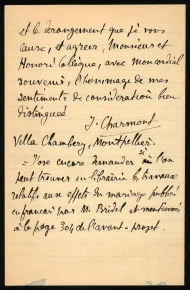 et le dérangement que je vous
cause, et agréer, Monsieur et
Honoré Collègue, avec mon cordial
souvenir, l'hommage de mes
sentiments de considération bien
distinguée
J. Charmont
Villa Chambery, Montpellier.
J'ose encore demander si l'on
peut trouver en librairie les travaux
relatifs aux effets du mariage publiés
en français par M. Bridel et mentionnés
à la page 304 de l'avant-projet.